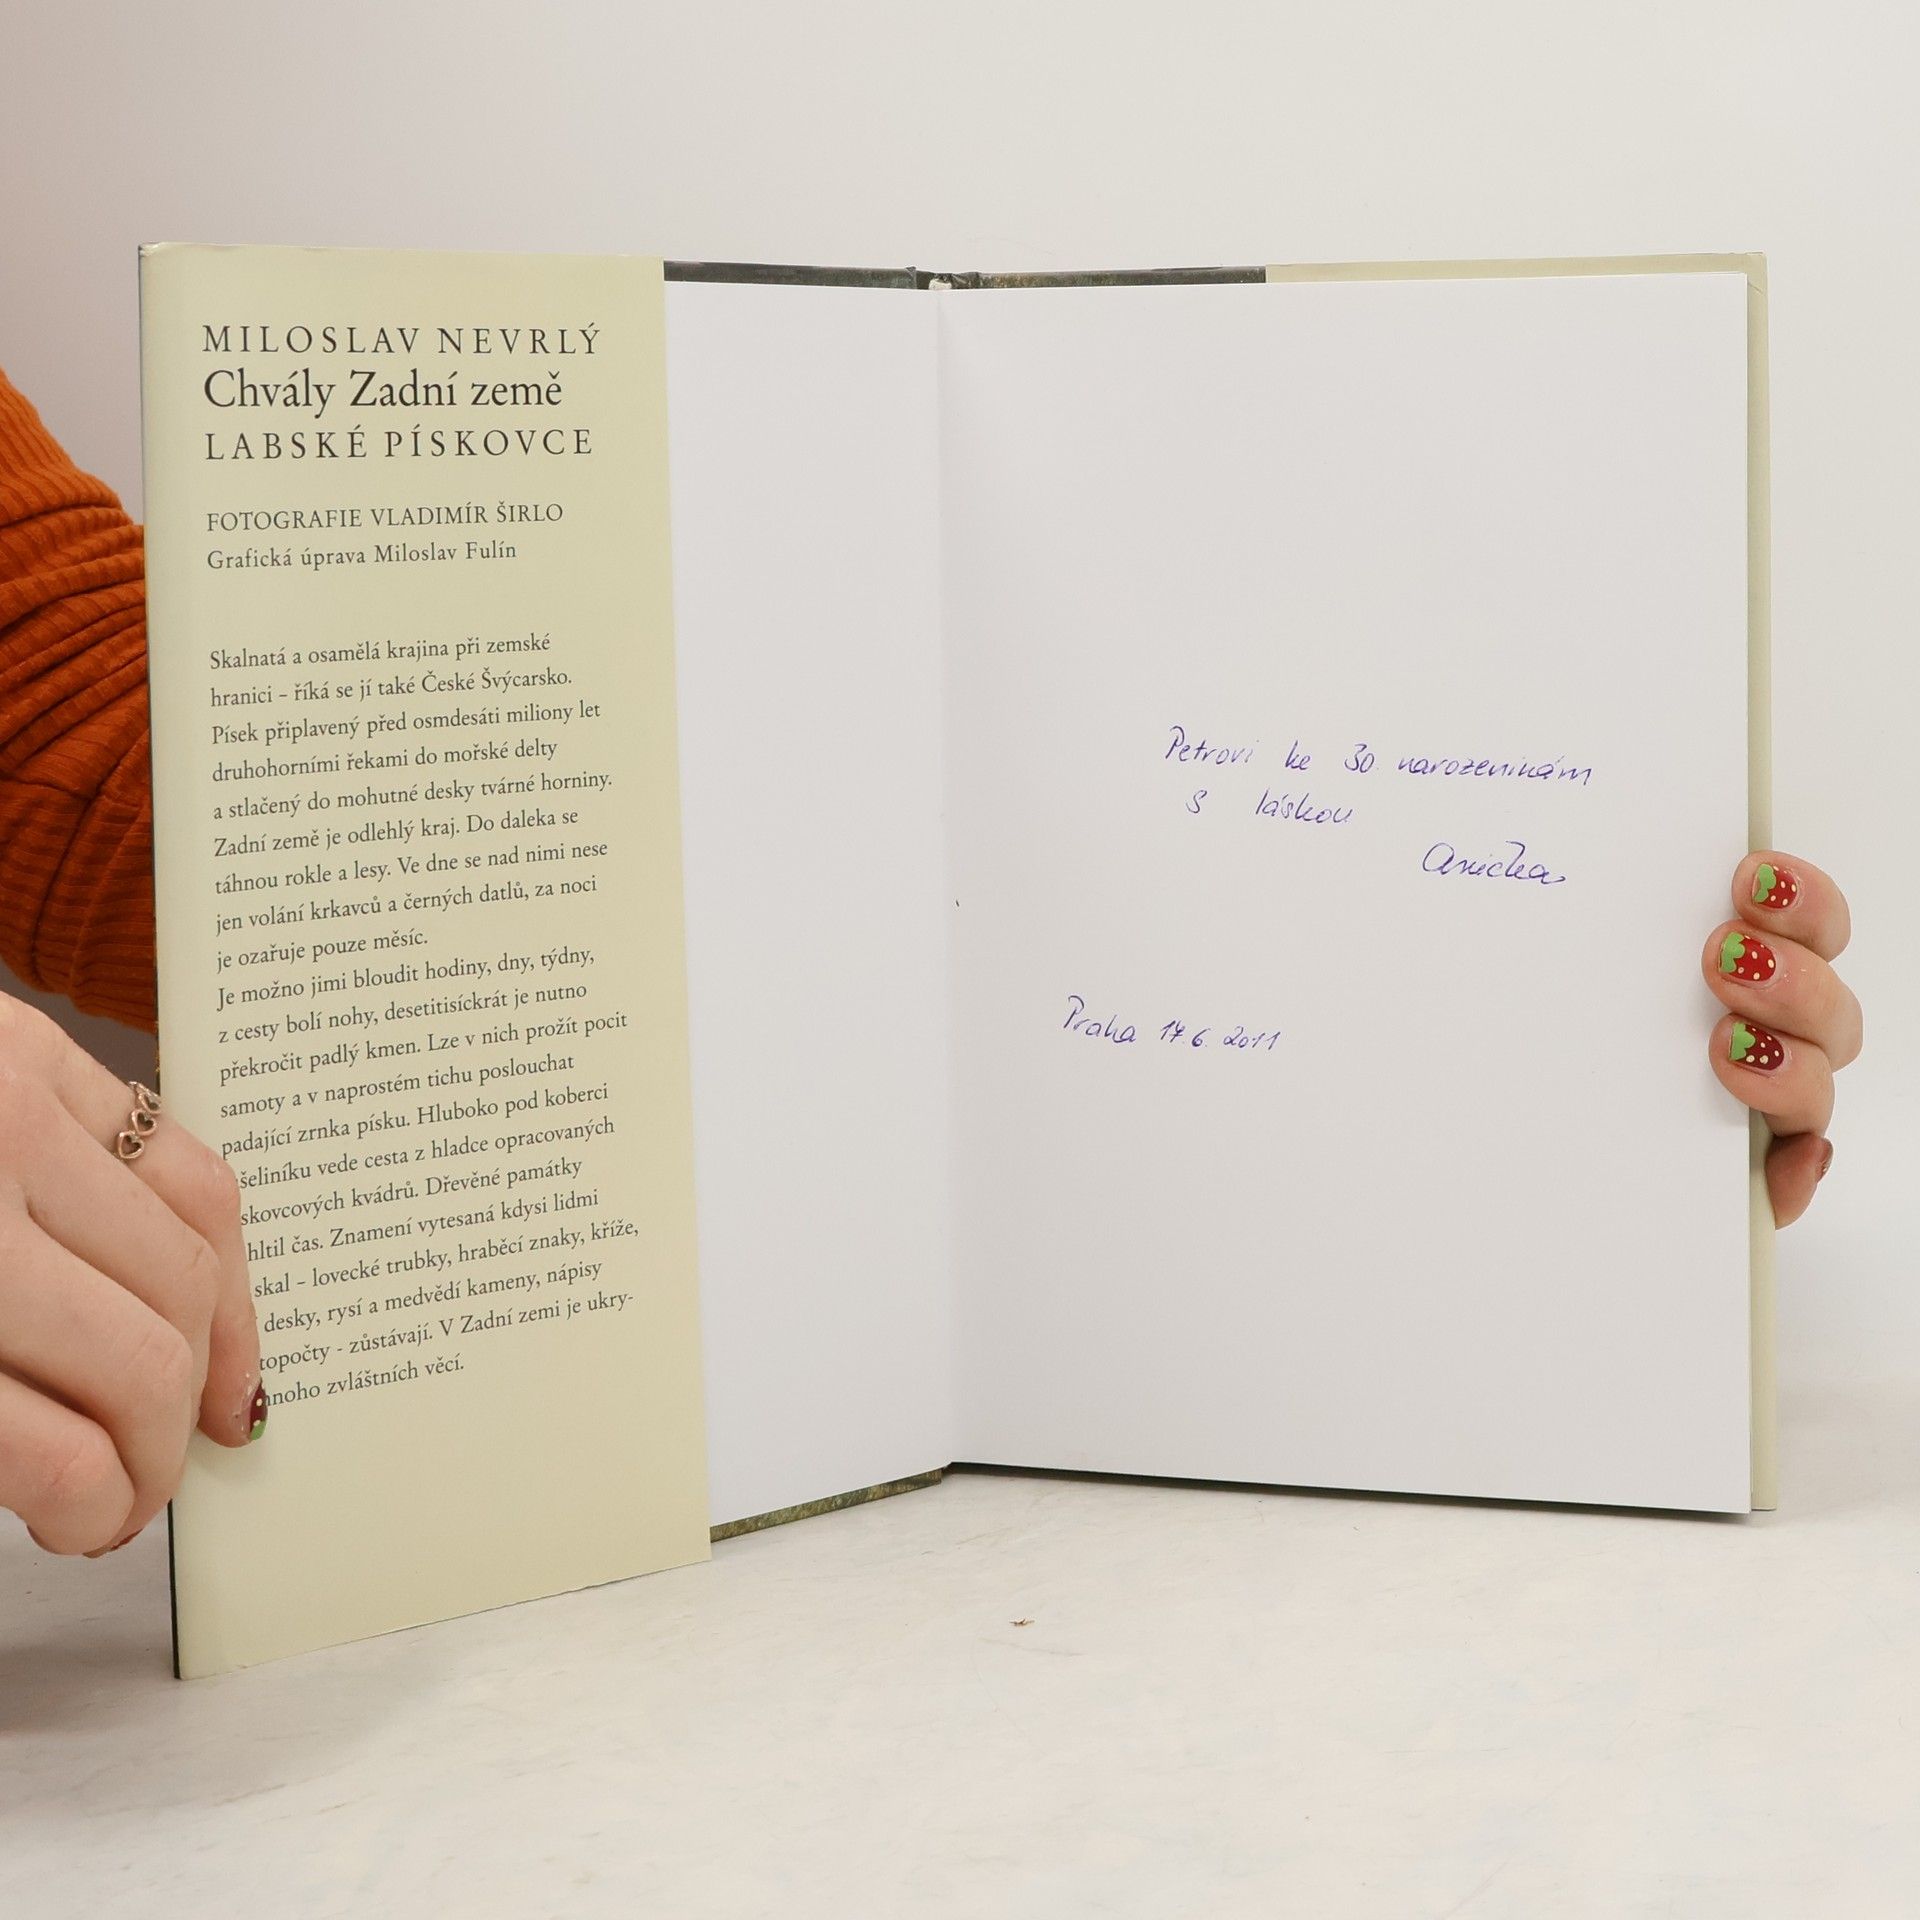 MILOSLAV NEVRLÝ
Chvály Zadní země
LABSKÉ PÍSKOVCE
FOTOGRAFIE VLADIMÍR ŠIRLO
Grafická úprava Miloslav Fulín
Skalnatá a osamělá krajina při zemské
hranici – říká se jí také České Švýcarsko.
Písek připlavený před osmdesáti miliony let
druhohorními řekami do mořské delty
a stlačený do mohutné desky tvárné horniny.
Zadní země je odlehlý kraj. Do daleka se
táhnou rokle a lesy. Ve dne se nad nimi nese
jen volání krkavců a černých datlů, za noci
je ozařuje pouze měsíc.
Je možno jimi bloudit hodiny, dny, týdny,
z cesty bolí nohy, desetitisíckrát je nutno
překročit padlý kmen. Lze v nich prožít pocit
samoty a v naprostém tichu poslouchat
padající zrnka písku. Hluboko pod koberci
šeliníku vede cesta z hladce opracovaných
skovcových kvádrů. Dřevěné památky
hltil čas. Znamení vytesaná kdysi lidmi
skal – lovecké trubky, hraběcí znaky, kříže,
desky, rysí a medvědí kameny, nápisy
topočty - zůstávají. V Zadní zemi je ukry-
mnoho zvláštních věcí.
Petrovi ke 30. narozeninám
s láskou
Anička
Praha 17.6.2011